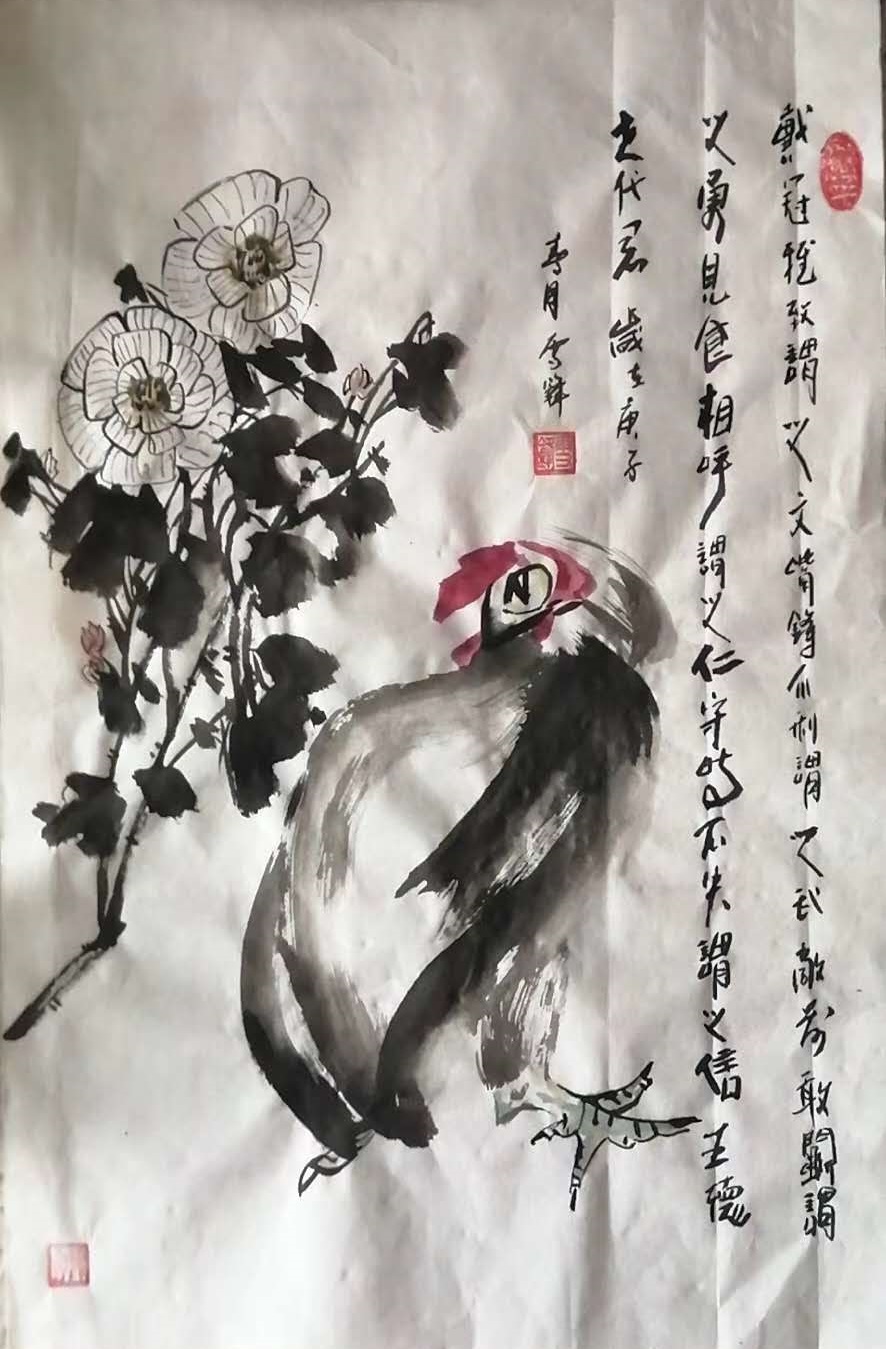 戴冠雅致謂以文嘴鋒爪利謂以武敵前敢鬭謂
以勇見食相呼謂以仁守時不失謂以信五德
之代君 歲在庚子
春月